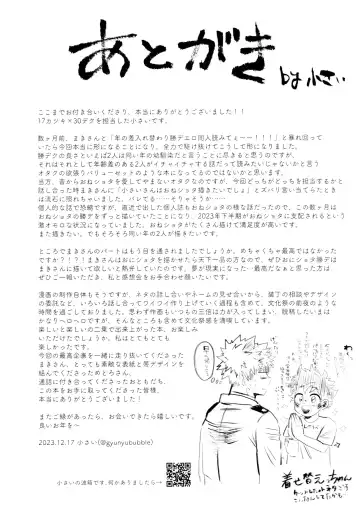 あとがき
by 小さい
ここまでお付き合いくださり、本当にありがとうございました!!
17カツキ×30デクを担当した小さいです。
数ヶ月前、まきさんと「年の差入れ替わり勝デエロ同人読みてぇーー!!!」と暴れ回って
いたら今回本当に形になることになり、全力で駆け抜けてこうして形になりました。
勝デクの良さといえば2人は同い年の幼馴染だと言うことに尽きると思うのですが、
それはそれとして年齢差のある2人がイチャイチャする話だって読みたいじゃないかと言う
オタクの欲張りバリューセットのような本になってるのではないかと思います。
当方、昔からおねショタを愛してやまないオタクなのですが、今回どっちがどっちを担当するかと
話し合った時まきさんに「小さいさんはおねショタ描きたいでしょ」とズバリ言い当てらたとき
は流石に照れちゃいました。バレてる……そりゃそうか……
個人的な話で恐縮ですが、直近で出した個人誌もおねショタの様な話だったので、この数ヶ月は
おねショタの勝デをずっと描いていたことになり、2023年下半期がおねショタに支配されるという
激オモロな状況になっていました。おねショタがたくさん描けて満足度が高いです。
また描きたい。でもそろそろ同い年の2人が描きたいです。
ところでまきさんのパートはもう目を通されましたでしょうか。めちゃくちゃ最高ではなかった
ですか?!?!まきさんはおにショタを描かせたら天下一品の方なので、ぜひおにショタ勝デは
まきさんに描いて欲しいと熱弁していたのです。夢が現実になった…最高だなぁと思った方は
ぜひご一報いただき、私と感想会をお手合わせ願いたいです。
漫画の制作自体もそうですが、ネタの話し合いやネームの見せ合いから、装丁の相談やデザイン
の委託など、いろいろ話し合ってワイワイ作り上げていく過程も含めて、文化祭の前夜のような
時間を過ごしておりました。思わず作画もいつもの三倍は力が入ってしまい、脱稿したいまは
かなりヘロヘロですが、そんなところも含めて文化祭感を満喫しています。
楽しいと楽しいの二乗で出来上がった本、お楽しみ
いただけたでしょうか。私はとてもとても
楽しかったです。
今回の最高企画を一緒に走り抜いてくださった
まきさん、とっても素敵な表紙と帯デザインを
組んでくださっためとろさん、
通話に付き合ってくださったおともだち、
この本をお手に取ってくださった皆様、
本当にありがとうございました!
またご縁があったら、お会いできたら嬉しいです。
良いお年を〜
2023.12.17 小さい(@gyunyububble)
小さいの波箱です。何かありましたら→
着せ替えちゃん